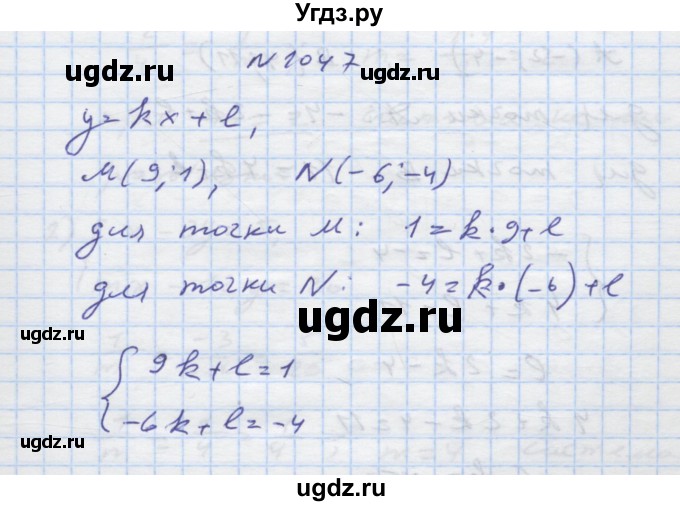 Угдз.ру
N 1047
ugdz.ru ugdz.ru
y=kx+l,
ugdz.ru
M(9;1), N(-6;-4)
для точки M: 1=k·9+l
для точки N: -4=k·(-6)+l
ugdz.ru
ugdz.ru
9k+l=1
-6k+l=-4
ugdz.ru ugdz.ru
ugdz.ru